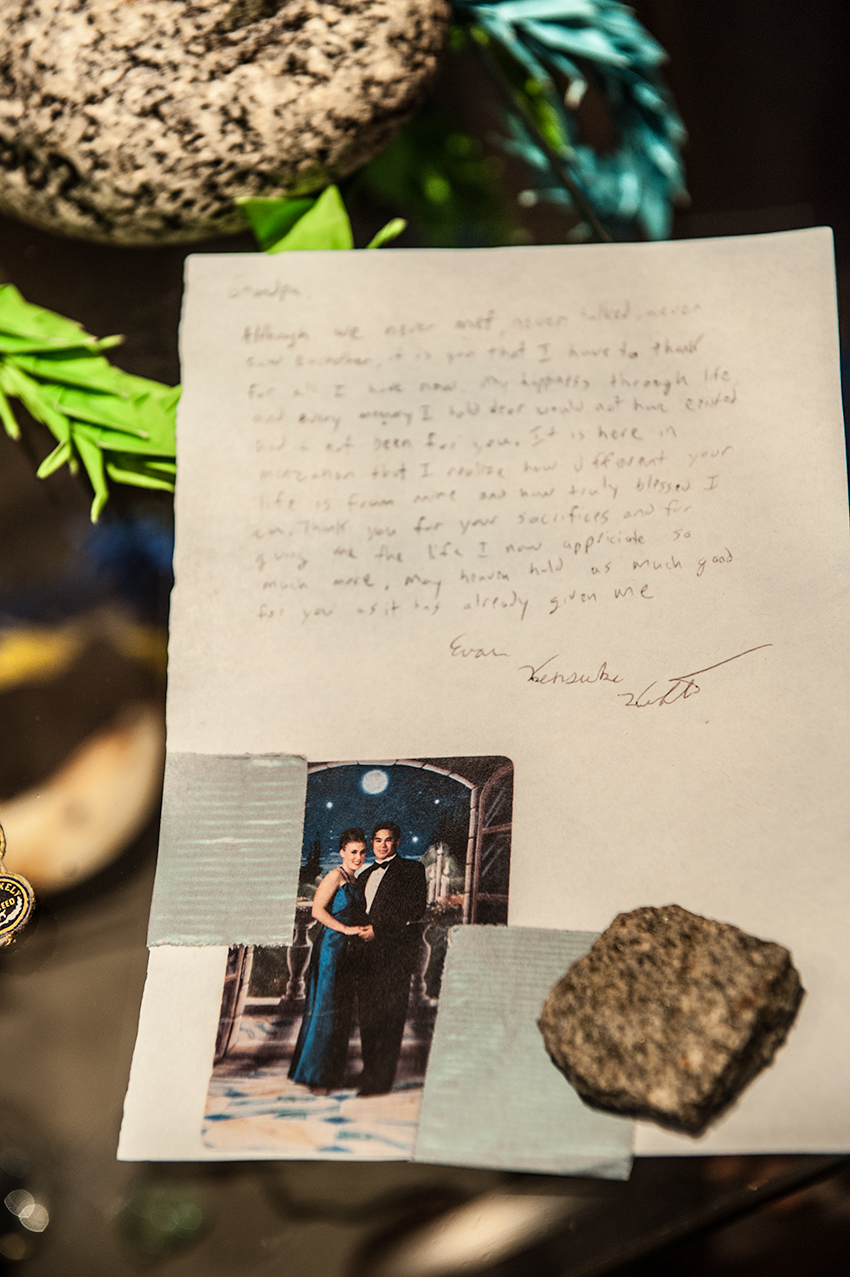 Grandpa,
Although we never met, never talked, never
saw eachother, it is you that I have to thank
for all I have now. My happness through life
and every memory I hold dear would not have existed
had it not been for you. It is here in
manzanar that I realize how different your
life is from mine and how truly blessed I
am. Thank you for your sacrifices and for
giving me the life I now appriciate so
much more. May heaven hold as much good
for you as it has already given me
Evan
Kensuke